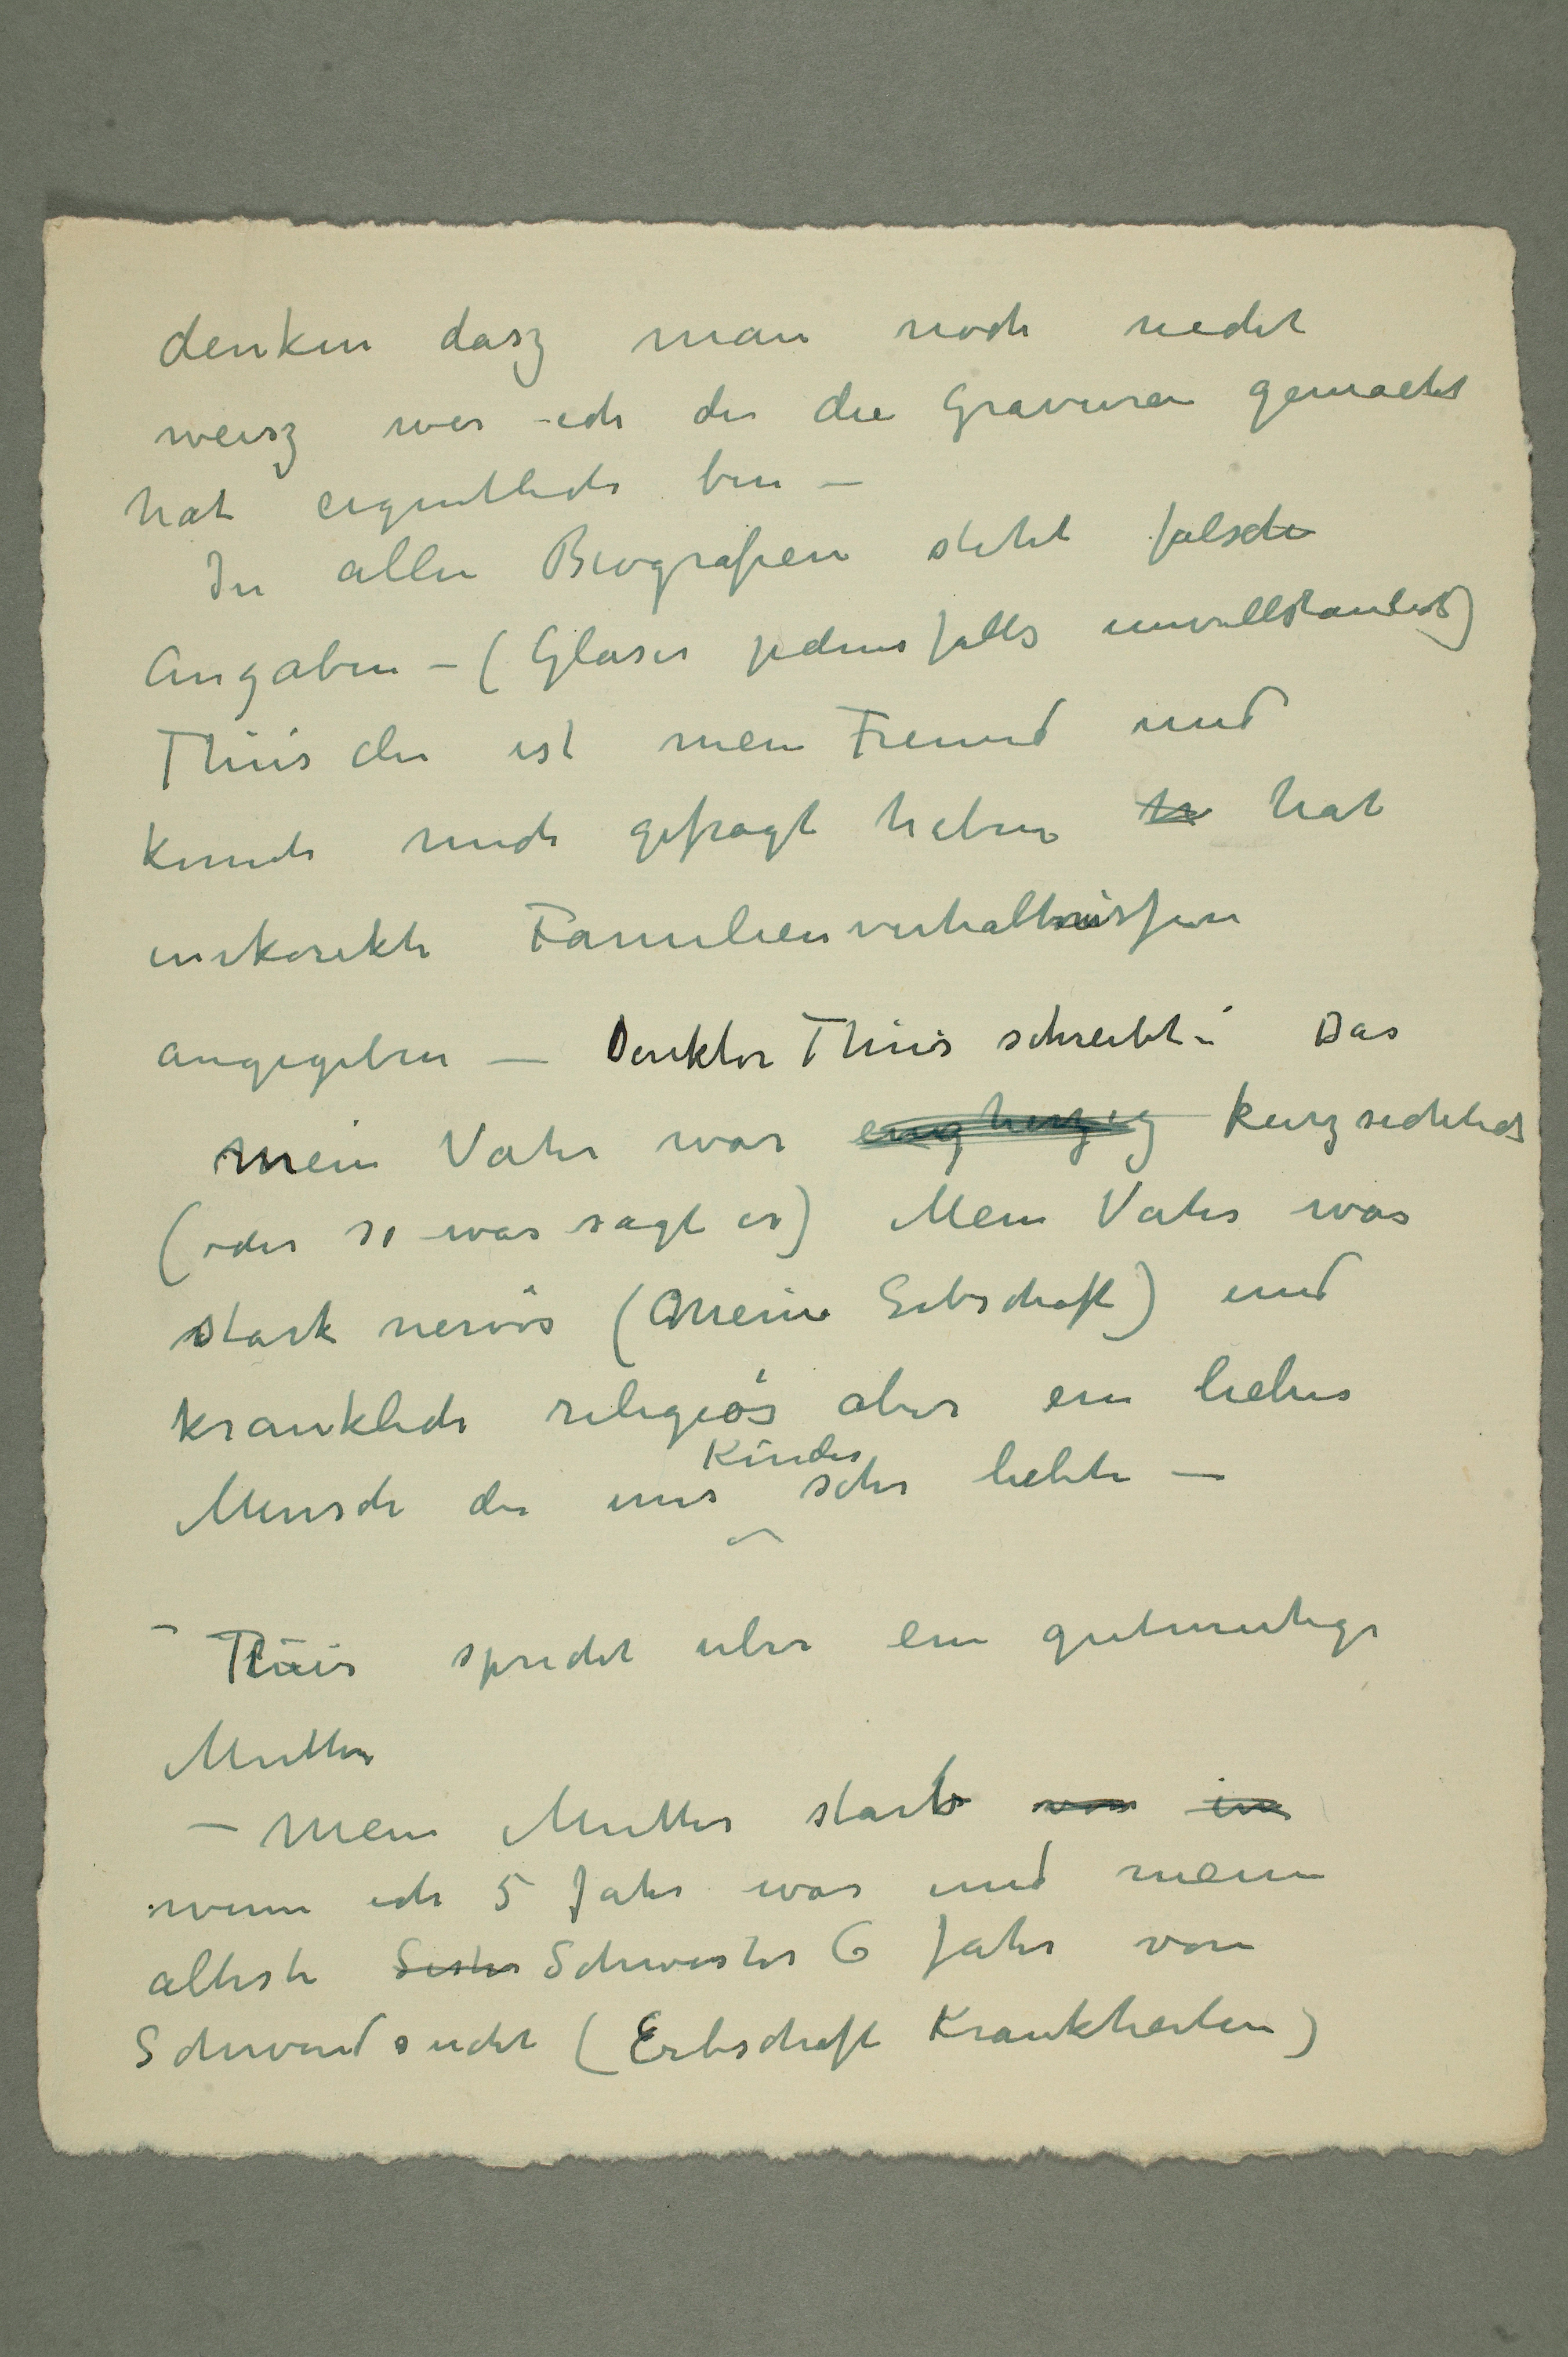 denken dasz man noch nicht
weisz wer ich der die Gravuren gemacht
hat eigentlich bin –
In allen Biografien steht falsche
Angaben – (Glaser jedensfalls unvollstandig)
Thiis der ist mein Freund und
konnte mich gefragt haben hat
inkorekte Familienverhaltnissen
angegeben – Direktor Thiis schreibt: Das
mein Vater war engherzig kurzsichtlich
(oder so was sagt er) Mein Vater war
stark nervös (Meine Erbschaft) und
kranklich religiös aber ein lieber
Kinder
Mensch der uns sehr liebte –
– Thiis spricht uber ein gutmutige
Mutter
– Mein Mutter starb von in
wenn ich 5 Jahr war und meine
alteste Sister Schwester 6 Jahr von
Schwindsucht (Erbschaft Krankheiten)